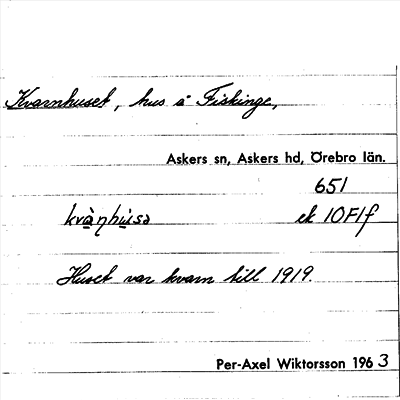 Kvarnhuset, hus å Fiskinge,
Askers sn, Askers hd, Örebro län.
651
kvàṇhùsə ek 10F1f
Huset var kvarn till 1919.
Per-Axel Wiktorsson 1963